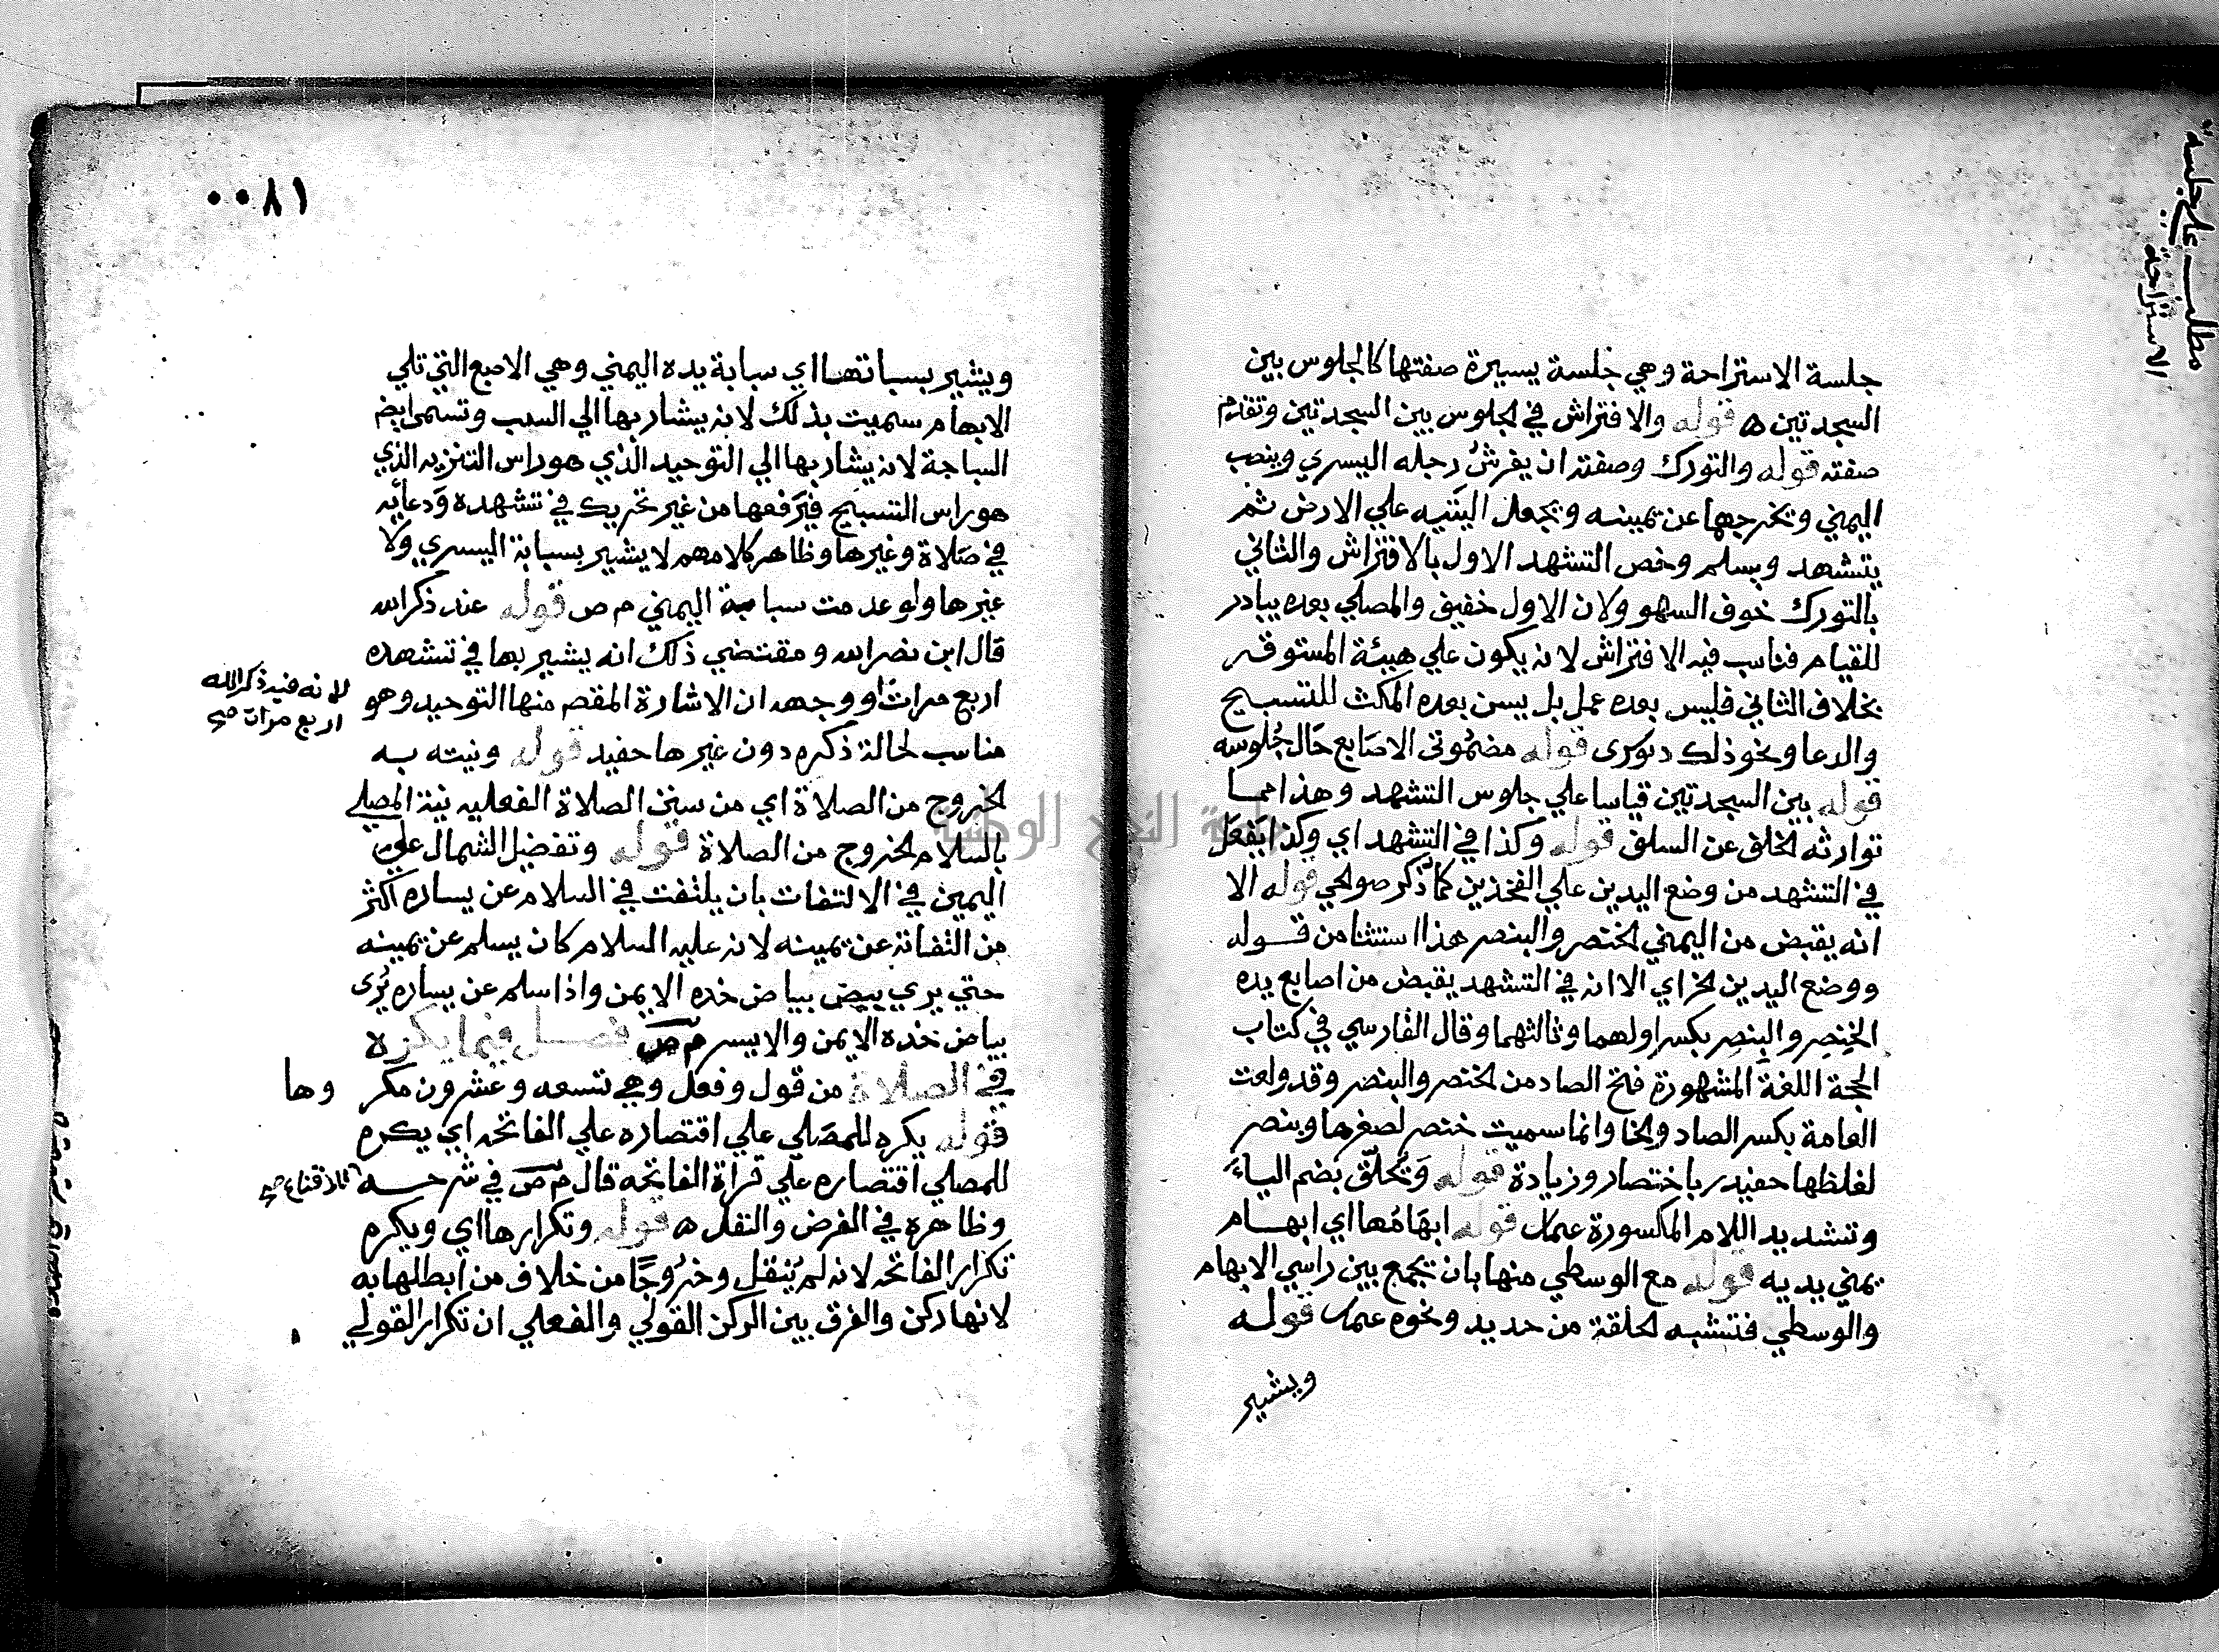 مطلب على جلسة
الاستراحة
جلسة الاستراحة وهي جلسة يسيرة صفتها كالجلوس بين
السجدتين ه قوله والافتراش في لجلوس بين السجدتين وتقدم
صفته قوله والتورك وصفته ان يفرش رجله اليسري وينصب
اليمني ويخرجهما عن يمينه ويجعل اليتيه علي الارض ثم
يتشهد ويسلم وخص التشهد الاول بالافتراش والثاني
بالتورك خوف السهو ولان الاول خفيف والمصلي بعده يبادر
للقيام فناسب فيه الافتراش لانه يكون علي هيئة المستوفر
بخلاف الثاني فليس بعده عمل بل يسن بعده المكث للتسبيح
والدعا ونحو ذلك دنوكرى قوله مضمومتي الاصابع حال جلوسه
قوله بين السجدتين قياسا علي جلوس التشهد وهذا مما
توارثه لخلف عن السلف قوله وكذا في التشهد اي وكذا يفعل
في التشهد من وضع اليدين علي الفخذين كما ذكر صوالحي قوله الا
انه يقبض من اليمني لخنصر والبنصر هذا استثنا من قوله
ووضع اليدين لخ اي الا انه في التشهد يقبض من اصابع يده
الخنصر والبنصر بكسر اولهما وثالثهما وقال الفارسي في كتاب
الحجة اللغة المشهورة فتح الصاد من لخنصر والبنصر وقد ولعت
العامة بكسر الصاد ولخا وانما سميت خنصر لصغرها وبنصر
لغلظها حفيد باختصار وزيادة قوله وتحلق بضم الياء
وتشديد اللام المكسورة عمك قوله ابهامها اي ابهام
يمني يديه قوله مع الوسطي منها بان يجمع بين راسي الابهام
والوسطي فتشبه لحلقة من حديد ونحوه عمك قوله
ويشير
٠٠٨١
ويشير بسباتها اي سبابة يده اليمني وهي الاصبع التي تلي
الابهام سميت بذلك لانه يشار بها الي السب وتسمى ايض
الساجة لانه يشار بها الي التوحيد الذي هو راس التنزيه الذي
هو راس التسبيح فيرفعها من غير تحريك في تشهده ودعائه
في صلاة وغيرها وظاهر كلامهم لا يشير بسبابة اليسري ولا
غيرها ولو عدمت سبابة اليمني م ص قوله عند ذكر الله
قال ابن نصر الله ومقتضي ذلك انه يشير بها في تشهده
اربع مرات ووجهه ان الاشارة المقصم منها التوحيد وهو
لانه فيه ذكر الله
اربع مرات صح
مناسب لحالة ذكره دون غيرها حفيد قوله ونيته به
لخروج من الصلاة اي من سنن الصلاة الفعليه نية المصلي
بالسلام لخروج من الصلاة قوله وتفضيل الشمال علي
اليمين في الالتفات بان يلتفت في السلام عن يساره اكثر
من التفاته عن يمينه لانه عليه السلام كان يسلم عن يمينه
حتي يري بياض خده الايمن واذا سلم عن يساره يرى
بياض خده الايمن والايسر م ص فصل فيما يكره
في الصلاة من قول وفعل وهي تسعه وعشرون مكروها
قوله يكره للمصلي علي اقتصاره علي الفاتحه اي يكره
للمصلي اقتصاره علي قراة الفاتحه قال م ص في شرحه
للاقناع صح
وظاهره في الفرض والنفل ه قوله وتكرارها اي ويكره
تكرار الفاتحه لانه لم ينقل وخروجا من خلاف من ابطلها به
لانها ركن والفرق بين الركن القولي والفعلي ان تكرار القولي